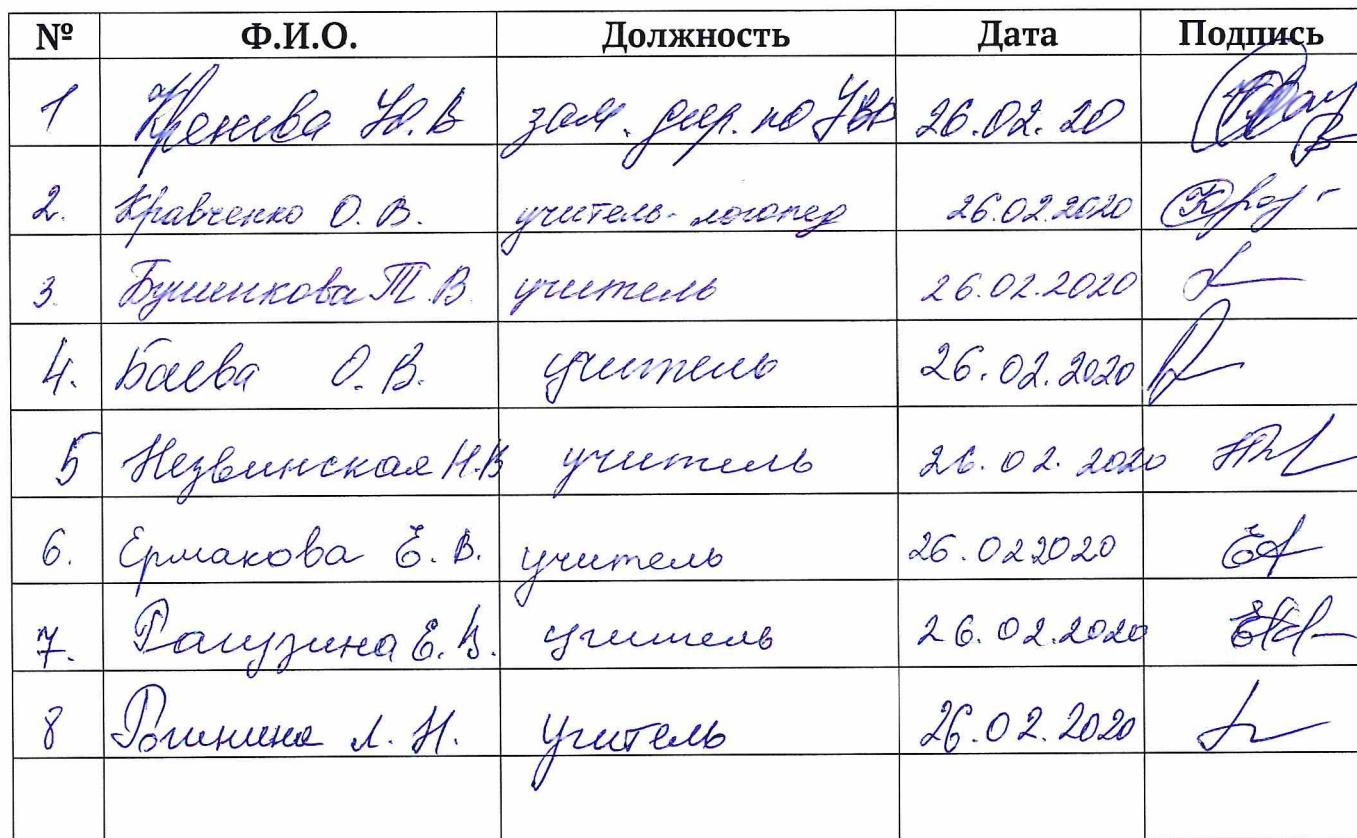 № Ф.И.О. Должность Дата Подпись
1 Ю.В зам. дир. по УВР 26.02.20
2. Кравченко О.В. учитель-логопед 26.02.2020
3. Бушенкова Т.В. учитель 26.02.2020
4. Баева О.В. учитель 26.02.2020
5 Незвинская Н.В учитель 26.02.2020
6. Ермакова Е.В. учитель 26.022020
7. Рагузина Е.В. учитель 26.02.2020
8 Л.Н. Учитель 26.02.2020